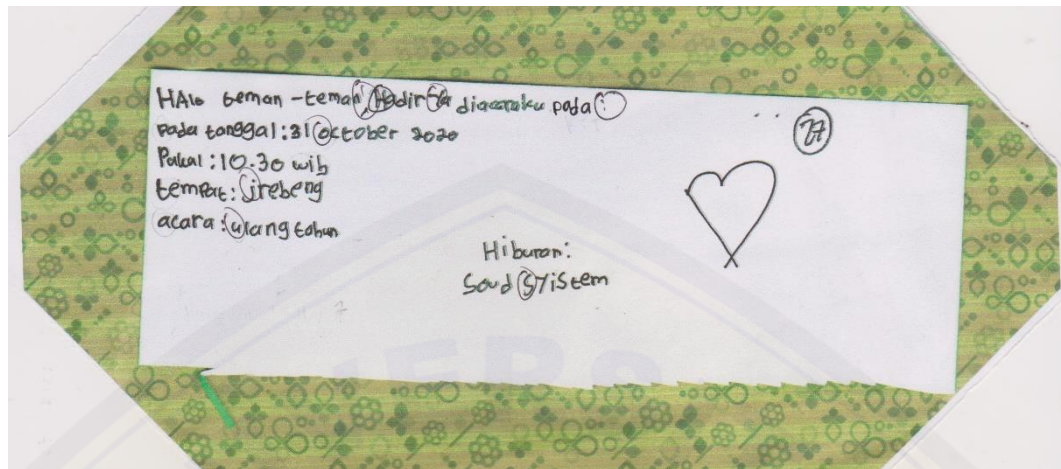 HAlo teman-teman Hadir ya diacaraku pada :
pada tanggal : 31 october 2020
Pukul : 10.30 wib
tempat : jrebeng
acara : ulang tahun
Hiburan :
Soud SYistem